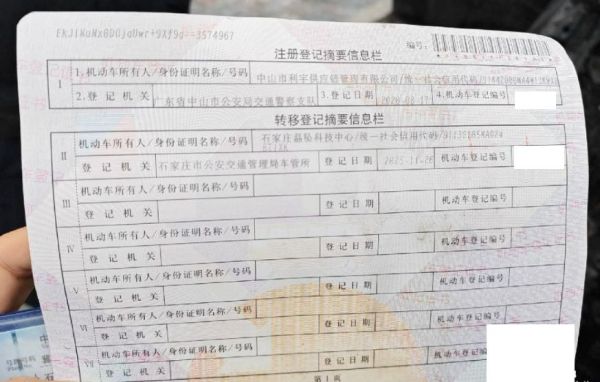 注册登记摘要信息栏
编号:
I
1.机动车所有人/身份证明名称/号码
中山市利宇供应链管理有限公司/统一社会信用代码
2.登记机关
广东省中山市公安局交通警察支队
3.登记日期
4.机动车登记编号
转移登记摘要信息栏
II
机动车所有人/身份证明名称/号码
石家庄晶坠科技中心/统一社会信用代码
登记机关
石家庄市公安交通管理局车管所
登记日期
机动车登记编号
III
机动车所有人/身份证明名称/号码
登记机关
登记日期
机动车登记编号
IV
机动车所有人/身份证明名称/号码
登记机关
登记日期
机动车登记编号
V
机动车所有人/身份证明名称/号码
登记机关
登记日期
机动车登记编号
VI
机动车所有人/身份证明名称/号码
登记机关
登记日期
VII
机动车所有人/身份证明名称/号码
登记机关
登记日期
第1页